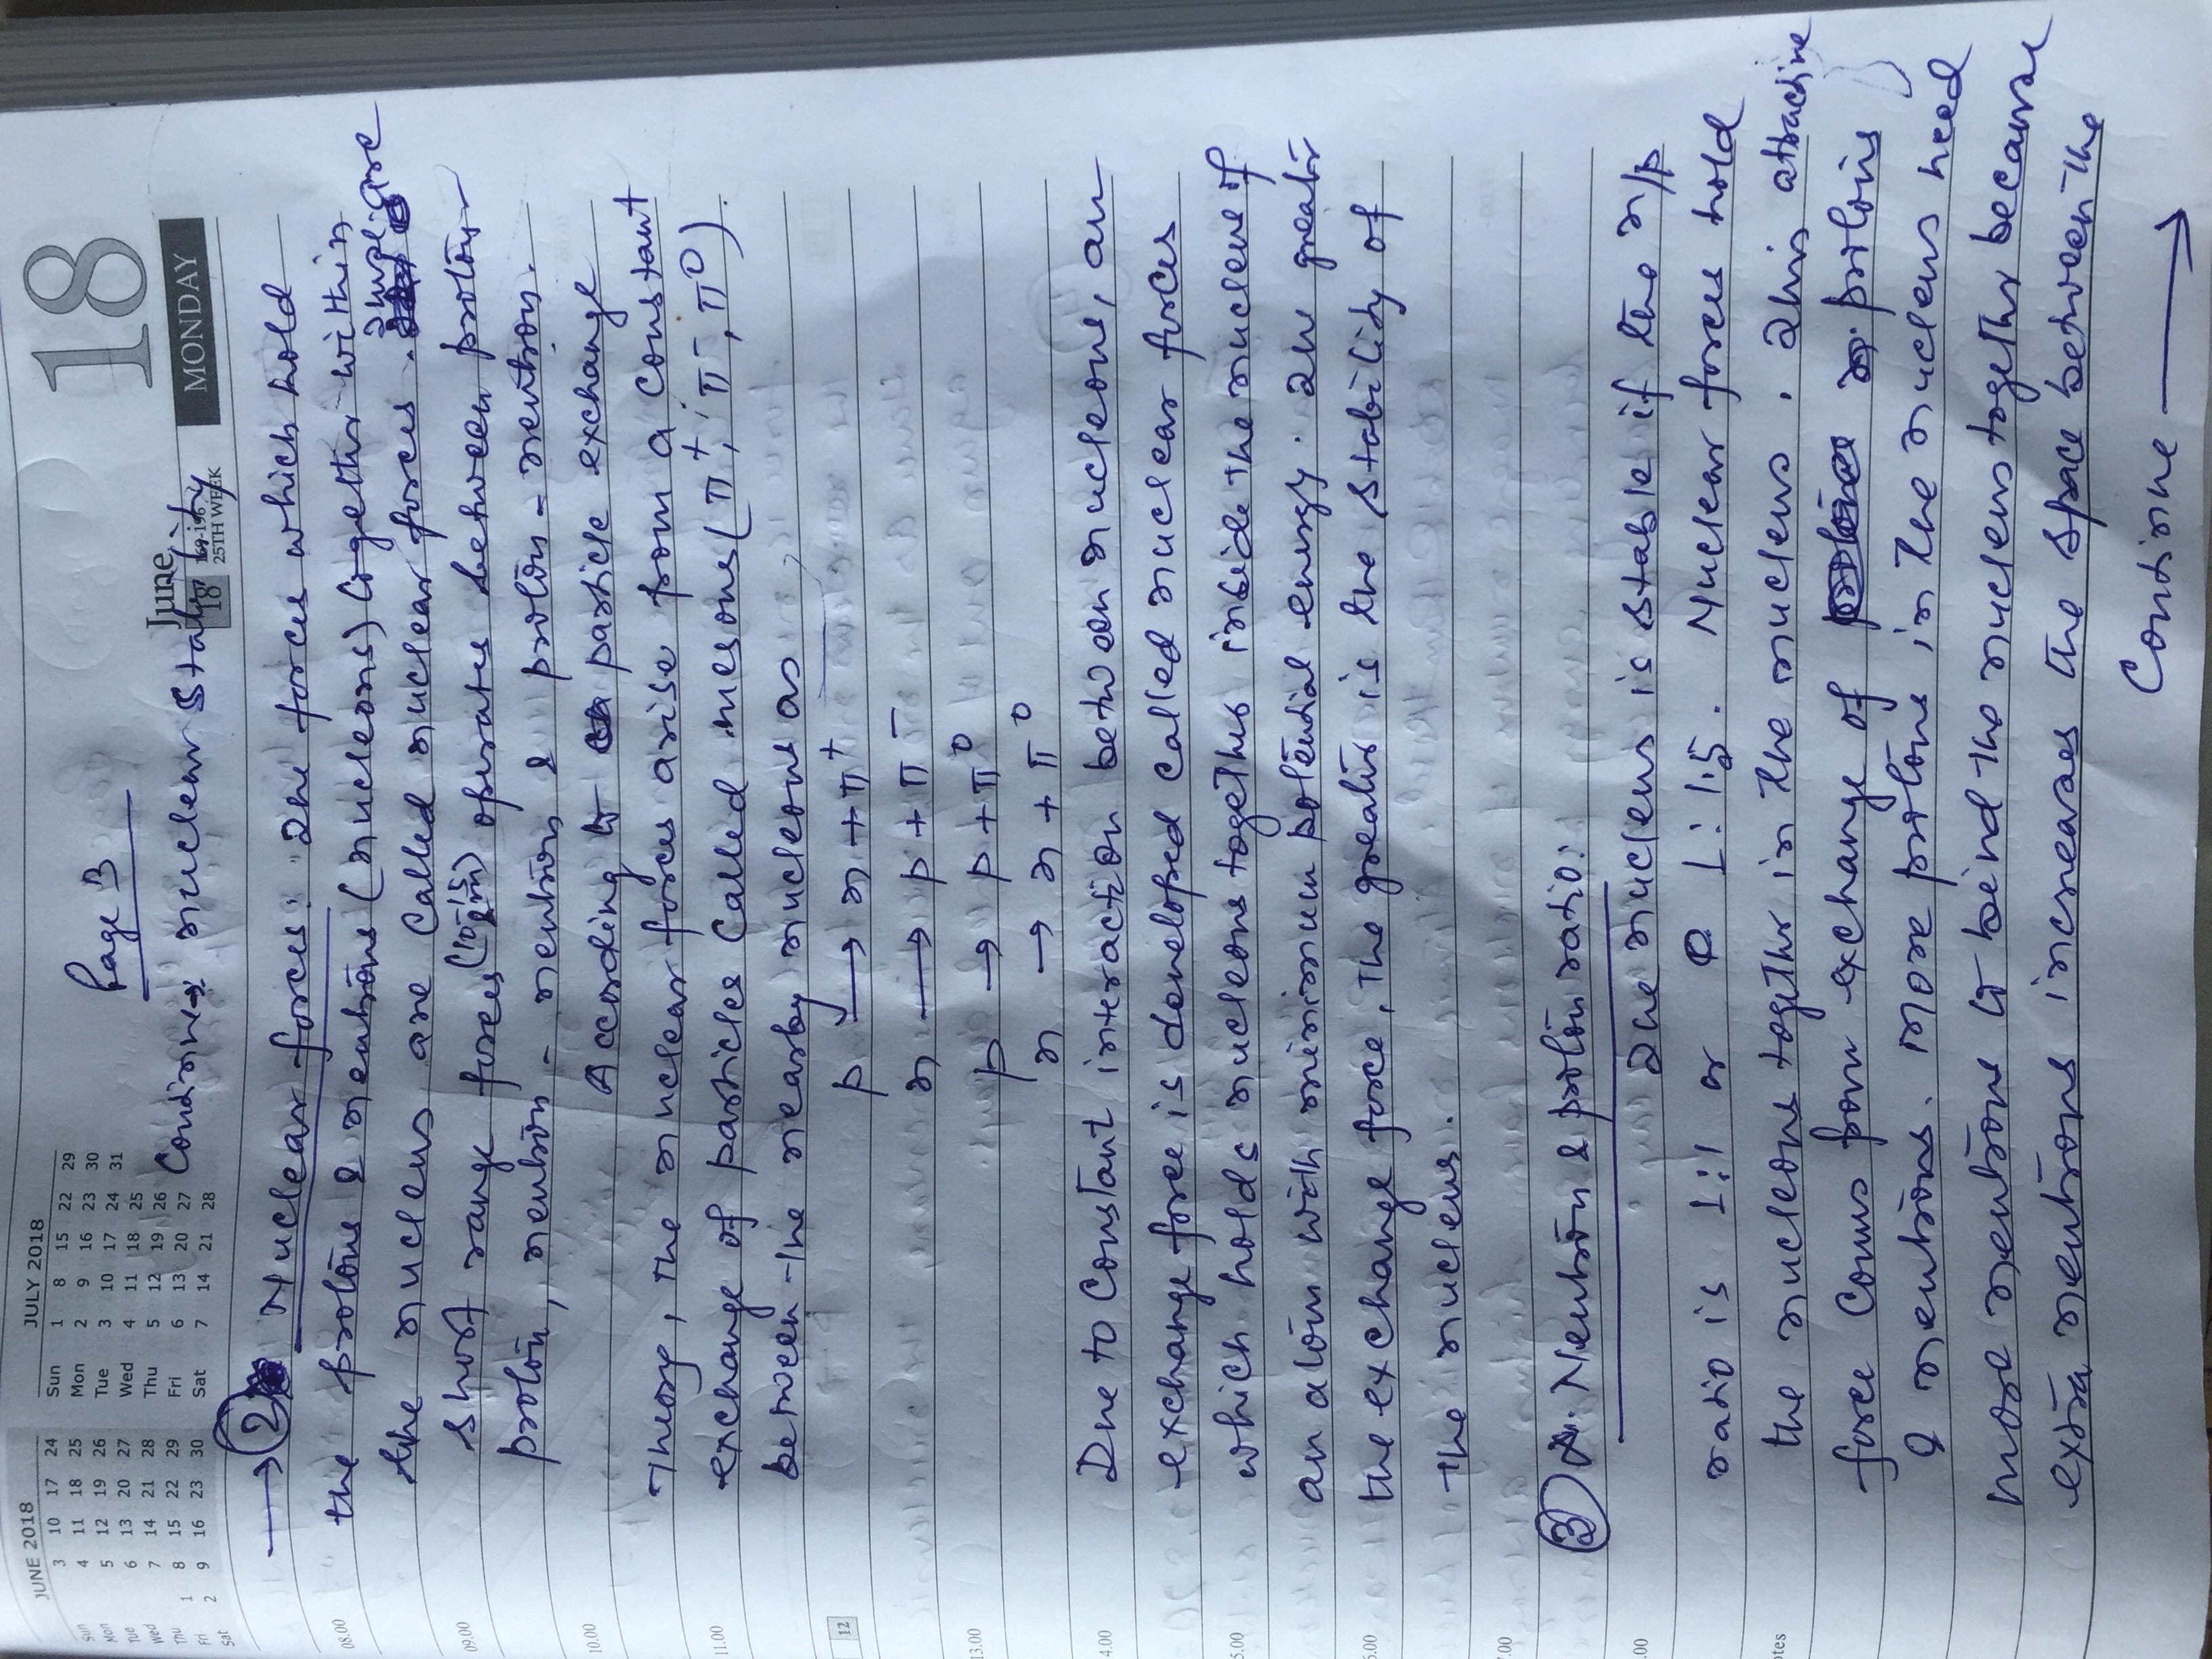 Page 3
JUNE 2018
Sun 3 10 17 24
Mon 4 11 18 25
Tue 5 12 19 26
Wed 6 13 20 27
Thu 7 14 21 28
Fri 1 8 15 22 29
Sat 2 9 16 23 30
JULY 2018
Sun 1 8 15 22 29
Mon 2 9 16 23 30
Tue 3 10 17 24 31
Wed 4 11 18 25
Thu 5 12 19 26
Fri 6 13 20 27
Sat 7 14 21 28
18
June
18
25TH WEEK
MONDAY
Continue → nuclear stability
→ ② Nuclear forces: The force which hold
08.00 the protons & neutrons (nucleons) together within
the nucleus are called nuclear forces. These are
09.00 short range forces (10⁻¹⁵m) operates between proton
proton, neutron - neutron & proton - neutron.
10.00 According to particle exchange
Theory, the nuclear forces arise from a constant
11.00 exchange of particles called mesons (π⁺, π⁻, π⁰)
between the nearby nucleons as
12 p → n + π⁺
n → p + π⁻
13.00 p → p + π⁰
n → n + π⁰
4.00 Due to constant interaction between nucleons, an
exchange force is developed called nuclear forces
5.00 which holds nucleons together inside the nucleus of
an atom with minimum potential energy. The greater
6.00 the exchange force, the greater is the stability of
the nucleus.
7.00
③ Neutron & proton ratio:
.00 The nucleus is stable if the n/p
ratio is 1:1 or 1:1.5. Nuclear forces hold
otes the nucleons together in the nucleus. This attractive
force comes from exchange of protons
& neutrons. More protons in the nucleus need
more neutrons to bind the nucleus together because
extra neutrons increases the space between the
Continue →